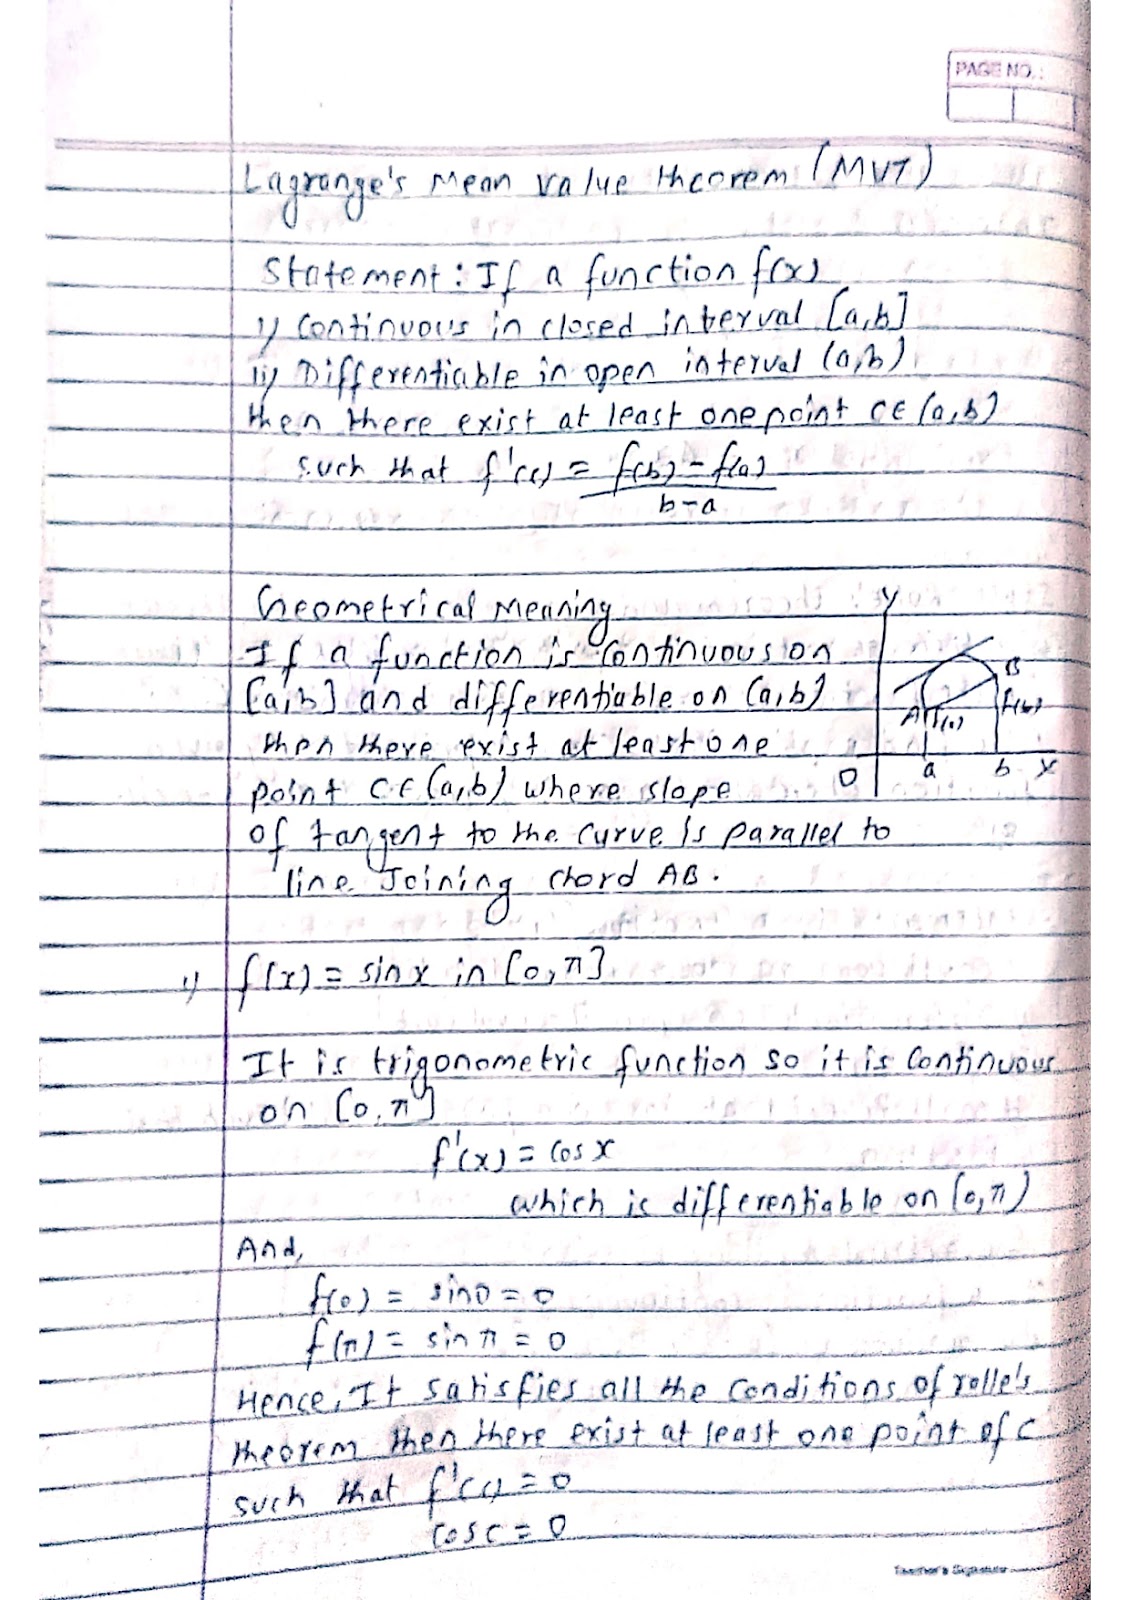 PAGE NO.:
Lagrange's Mean value theorem (MVT)
Statement : If a function f(x)
i) Continuous in closed interval [a,b]
ii) Differentiable in open interval (a,b)
then there exist at least one point c∈(a,b)
such that f'(c) = f(b) - f(a)
b-a
Geometrical Meaning
If a function is continuous on
[a,b] and differentiable on (a,b)
then there exist at least one
point c∈(a,b) where slope
of tangent to the curve is parallel to
line Joining chord AB.
y
B
A f(a) f(b)
O a b x
i) f(x) = sinx in [0,π]
It is trigonometric function so it is continuous
on [0,π]
f'(x) = cosx
which is differentiable on (0,π)
And,
f(0) = sin0 = 0
f(π) = sinπ = 0
Hence, It satisfies all the conditions of rolle's
theorem then there exist at least one point of c
such that f'(c) = 0
cosc = 0
Teacher's Signature